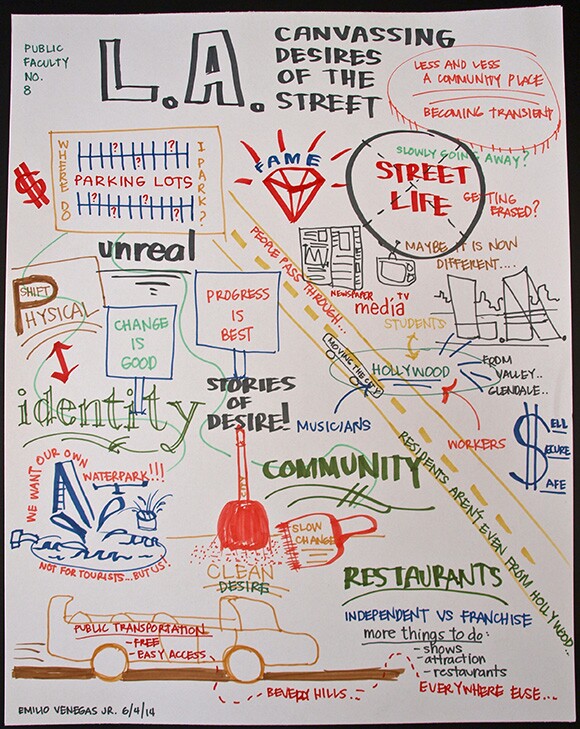 PUBLIC
FACULTY
NO.
8
L.A.
CANVASSING
DESIRES
OF THE
STREET
LESS AND LESS
A COMMUNITY PLACE
BECOMING TRANSIENT
WHERE DO
I PARK?
? ?
PARKING LOTS
? ?
$
FAME
STREET
LIFE
SLOWLY GOING AWAY?
GETTING
ERASED?
MAYBE IT IS NOW
DIFFERENT....
unreal
SHIFT
PHYSICAL
CHANGE
IS
GOOD
PROGRESS
IS
BEST
PEOPLE PASS THROUGH...
NEWSPAPER
TV
media
STUDENTS
HOLLYWOOD
MOVING THE CITY
FROM
VALLEY..
GLENDALE..
MUSICIANS
WORKERS
identity
STORIES
OF
DESIRE!
$ELL
$ECURE
$AFE
WE WANT OUR OWN
WATERPARK!!!
NOT FOR TOURISTS...BUT US!
COMMUNITY
RESIDENTS AREN'T EVEN FROM HOLLYWOOD..
SLOW
CHANGE
CLEAN
DESIRE
RESTAURANTS
INDEPENDENT VS FRANCHISE
more things to do:
- shows
- attraction
- restaurants
PUBLIC TRANSPORTATION
- FREE
- EASY ACCESS
BEVERLY HILLS..
EVERYWHERE ELSE...
EMILIO VENEGAS JR. 6/4/14